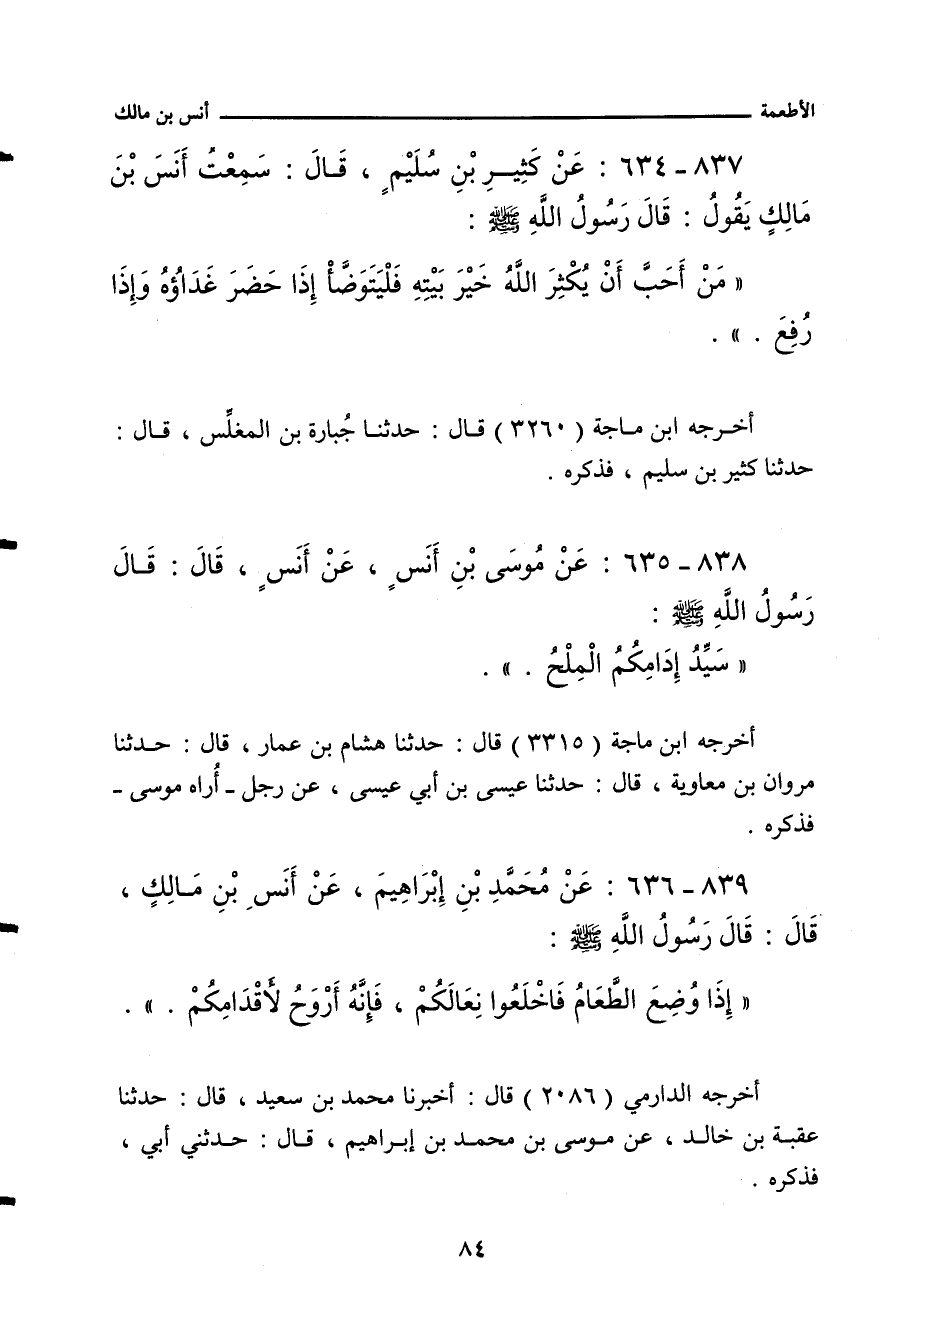 الأطعمة ــــــــــــــــــــ أنس بن مالك
٨٣٧ ـ ٦٣٤ : عَنْ كَثِيرِ بْنِ سُلَيْمٍ ، قَالَ : سَمِعْتُ أَنَسَ بْنَ
مَالِكٍ يَقُولُ : قَالَ رَسُولُ اللَّهِ ﷺ :
« مَنْ أَحَبَّ أَنْ يُكْثِرَ اللَّهُ خَيْرَ بَيْتِهِ فَلْيَتَوَضَّأْ إِذَا حَضَرَ غَدَاؤُهُ وَإِذَا
رُفِعَ . » .
أخرجه ابن ماجة ( ٣٢٦٠ ) قال : حدثنا جُبارة بن المغلِّس ، قال :
حدثنا كثير بن سليم ، فذكره .
٨٣٨ ـ ٦٣٥ : عَنْ مُوسَى بْنِ أَنَسٍ ، عَنْ أَنَسٍ ، قَالَ : قَالَ
رَسُولُ اللَّهِ ﷺ :
« سَيِّدُ إِدَامِكُمُ الْمِلْحُ . » .
أخرجه ابن ماجة ( ٣٣١٥ ) قال : حدثنا هشام بن عمار ، قال : حدثنا
مروان بن معاوية ، قال : حدثنا عيسى بن أبي عيسى ، عن رجل ـ أُراه موسى ـ
فذكره .
٨٣٩ ـ ٦٣٦ : عَنْ مُحَمَّدِ بْنِ إِبْرَاهِيمَ ، عَنْ أَنَسِ بْنِ مَالِكٍ ،
قَالَ : قَالَ رَسُولُ اللَّهِ ﷺ :
« إِذَا وُضِعَ الطَّعَامُ فَاخْلَعُوا نِعَالَكُمْ ، فَإِنَّهُ أَرْوَحُ لأَقْدَامِكُمْ . » .
أخرجه الدارمي ( ٢٠٨٦ ) قال : أخبرنا محمد بن سعيد ، قال : حدثنا
عقبة بن خالد ، عن موسى بن محمد بن إبراهيم ، قال : حدثني أبي ،
فذكره .
٨٤